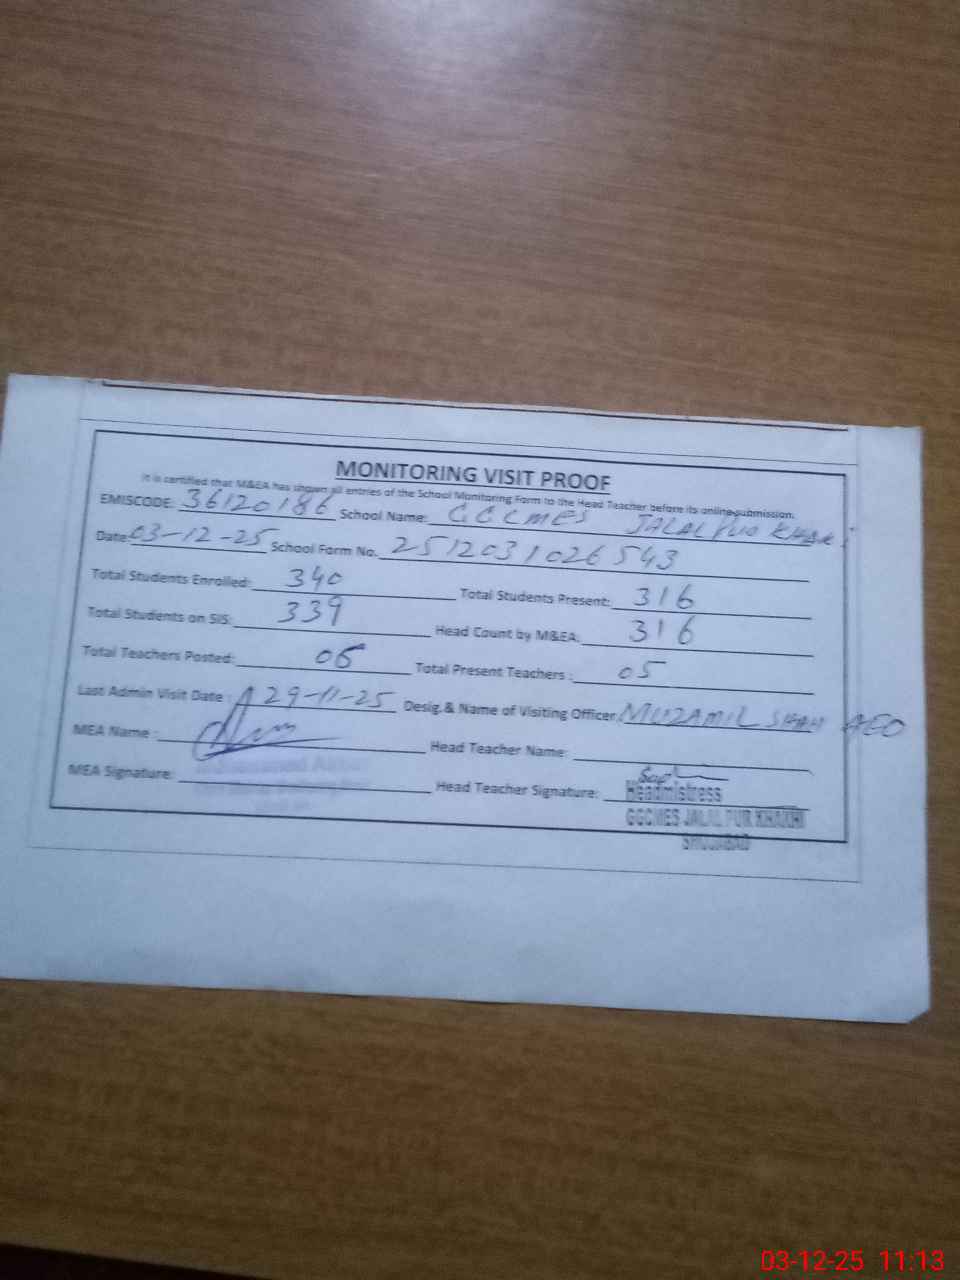 MONITORING VISIT PROOF
It is certified that M&EA has shown all entries of the School Monitoring Form to the Head Teacher before its online submission.
EMISCODE: 36120186 School Name: GGCMES JALAL PUR KHAKHI
Date: 03-12-25 School Form No. 2512031026543
Total Students Enrolled: 340 Total Students Present: 316
Total Students on SIS: 339 Head Count by M&EA: 316
Total Teachers Posted: 05 Total Present Teachers : 05
Last Admin Visit Date : 29-11-25 Desig.& Name of Visiting Officer MUZAMIL SHAH AEO
MEA Name : Head Teacher Name:
MEA Signature: Head Teacher Signature:
Headmistress
GGCMES JALAL PUR KHAKHI
SHUJABAD
03-12-25 11:13